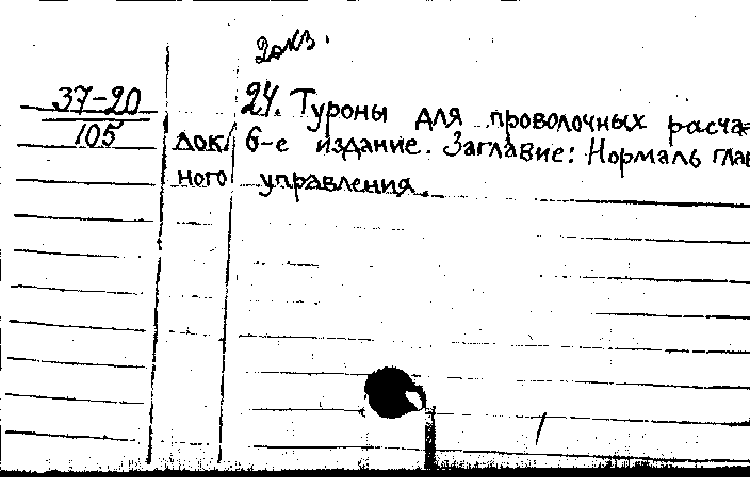 2 экз.
37-20 24. Туроны для проволочных расча=
105 лок/ 6-е издание. Заглавие: Нормаль глав
ного управления.